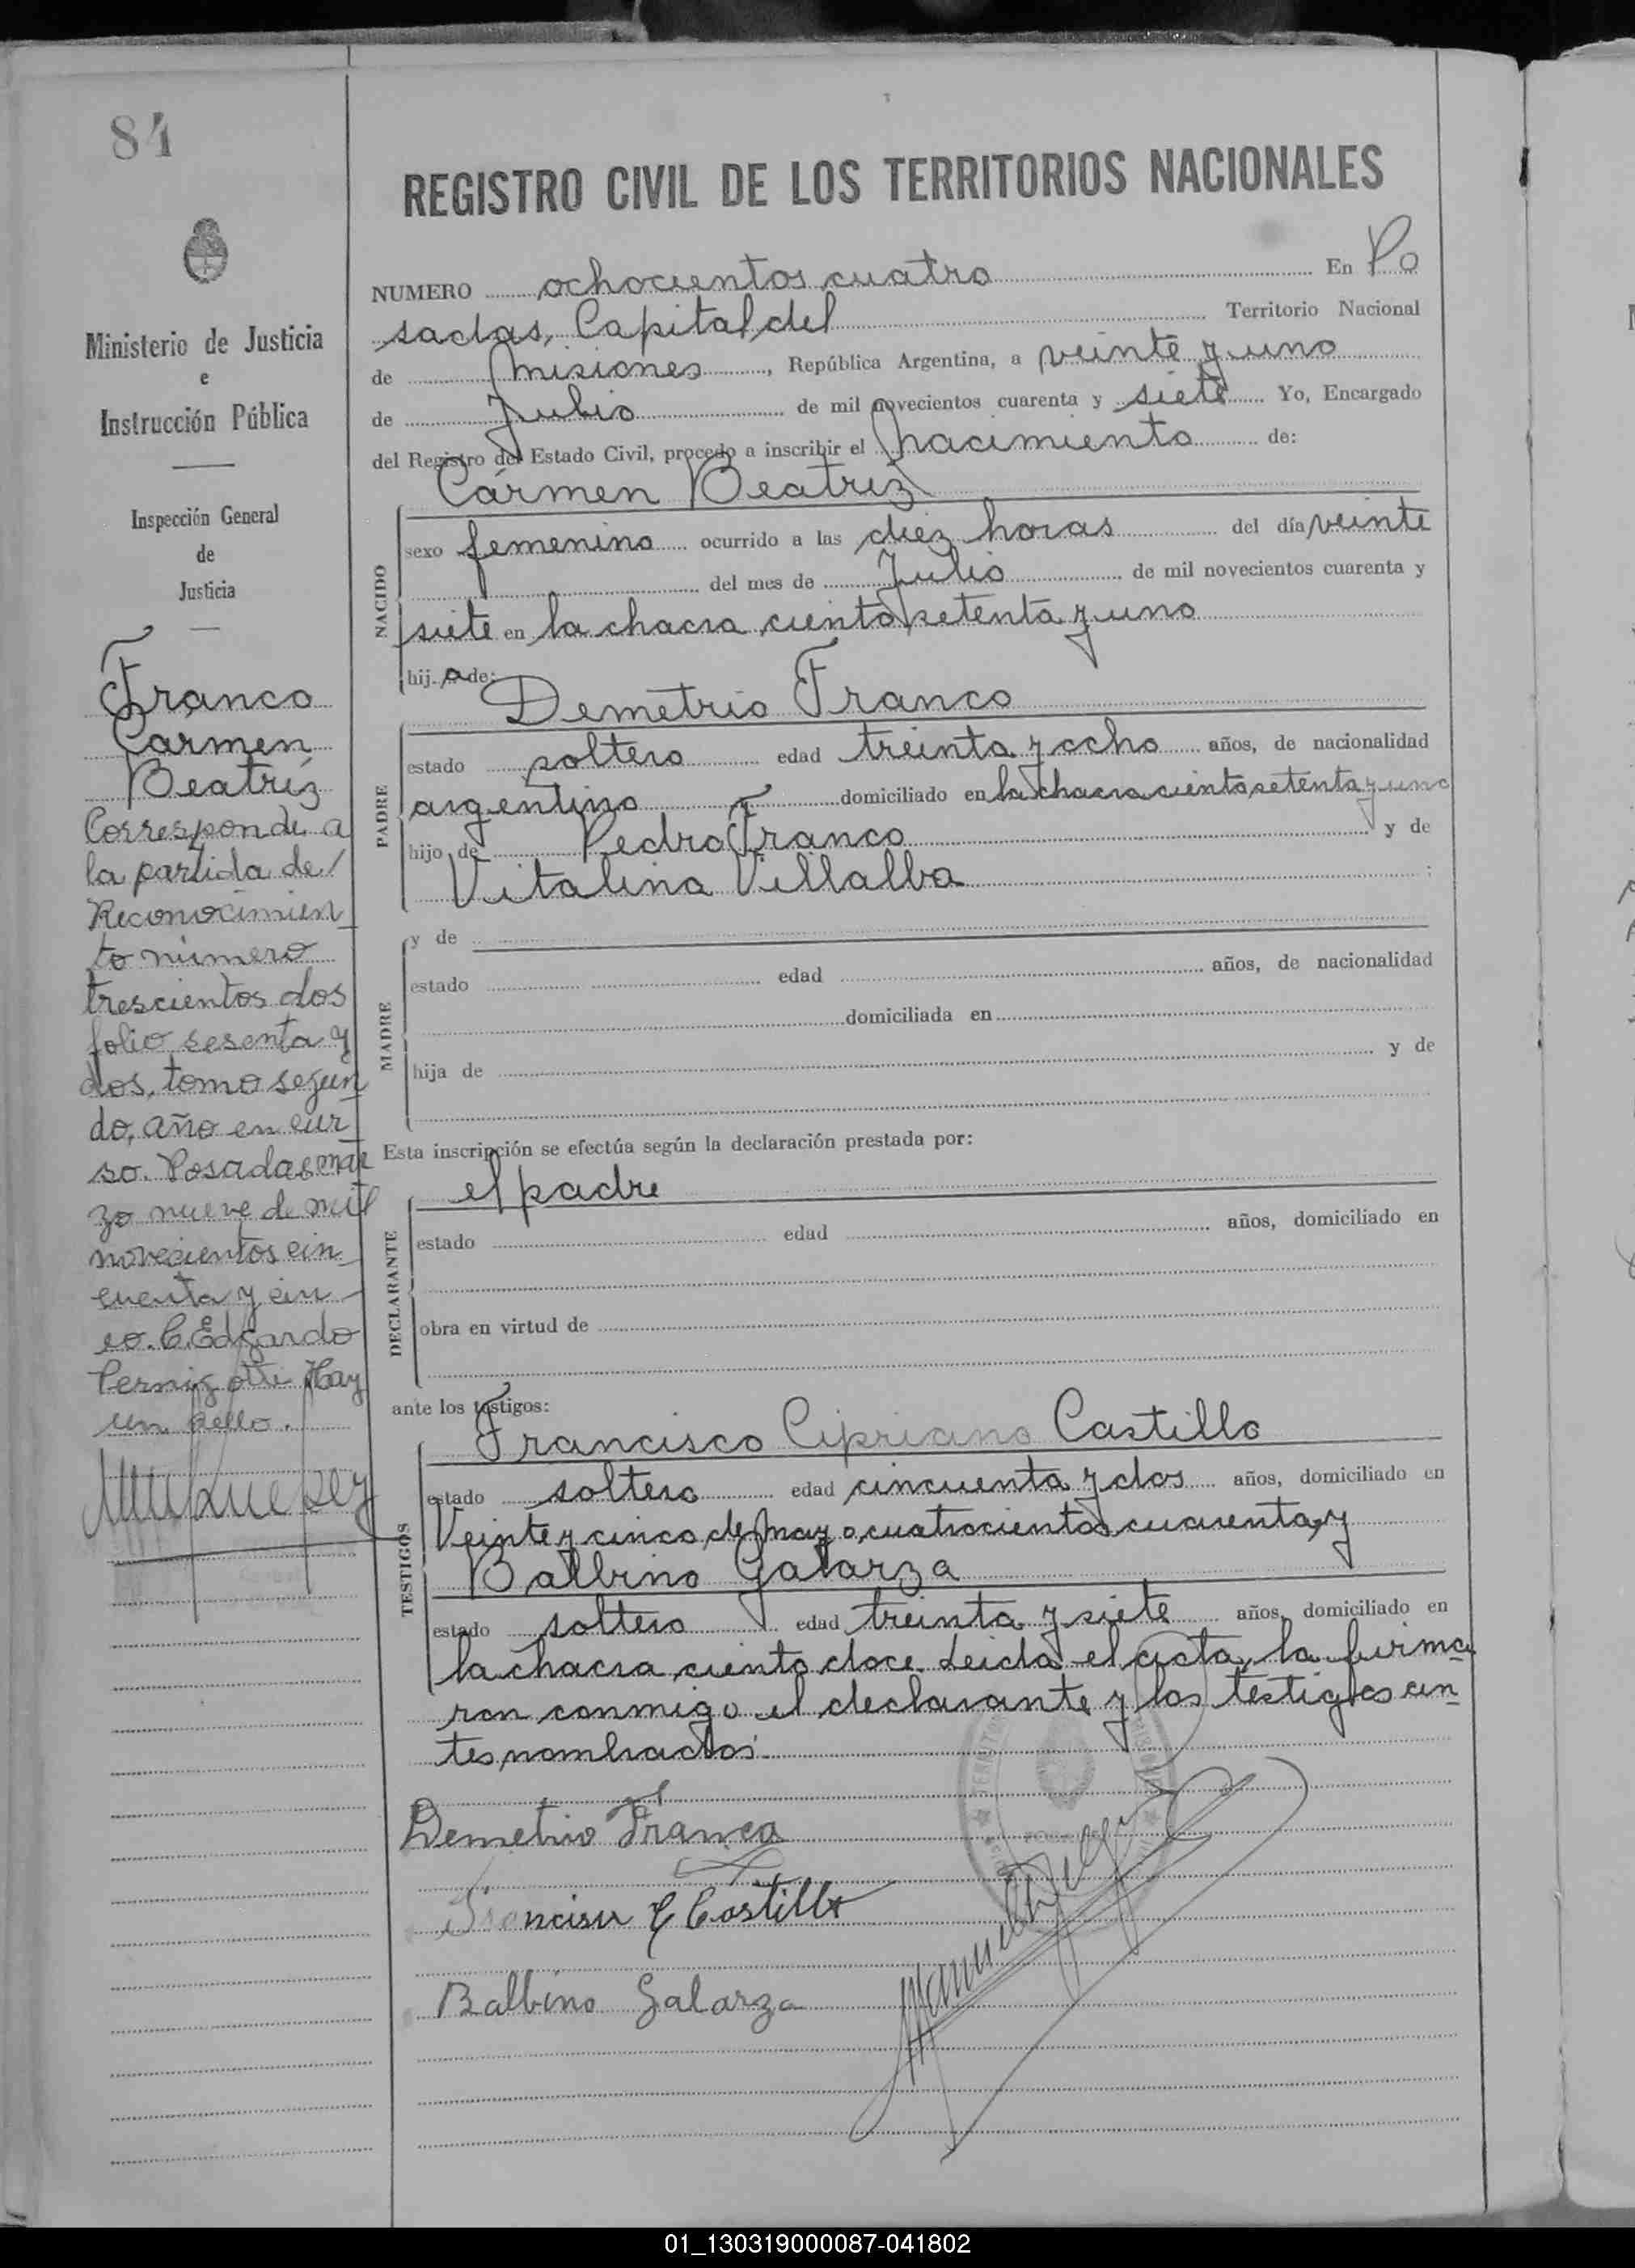 84
REGISTRO CIVIL DE LOS TERRITORIOS NACIONALES
NUMERO ochocientos cuatro En Po
sadas, Capital del Territorio Nacional
de Misiones, República Argentina, a veinte y uno
de Julio de mil novecientos cuarenta y siete Yo, Encargado
del Registro del Estado Civil, procedo a inscribir el nacimiento de:
Cármen Beatriz
NACIDO
sexo femenino ocurrido a las diez horas del día veinte
del mes de Julio de mil novecientos cuarenta y
siete en la chacra ciento setenta y uno
hij a de:
Demetrio Franco
PADRE
estado soltero edad treinta y ocho años, de nacionalidad
argentino domiciliado en la chacra ciento setenta y uno
hijo de Pedro Franco y de
Vitalina Villalba ;
MADRE
y de
estado edad años, de nacionalidad
domiciliada en
hija de y de
Esta inscripción se efectúa según la declaración prestada por:
el padre
DECLARANTE
estado edad años, domiciliado en
obra en virtud de
ante los testigos:
Francisco Cipriano Castillo
TESTIGOS
estado soltero edad cincuenta y dos años, domiciliado en
Veinte y cinco de Mayo cuatrocientos cuarenta y
Balbino Galarza
estado soltero edad treinta y siete años, domiciliado en
la chacra ciento doce. Leida el acta, la firma
ron conmigo el declarante y los testigos an
tes nombrados.
Demetrio Franco
Francisco C Castillo
Balbino Galarza
Ministerio de Justicia
e
Instrucción Pública
Inspección General
de
Justicia
Franco
Carmen
Beatríz
Corresponde a
la partida de/
Reconocimien
to número
trescientos dos
folio sesenta y
dos, tomo segun
do, año en cur
so. Posadas mar
zo nueve de mil
novecientos cin
cuenta y cin
co. C. Edgardo
Pernigotti Hay
un sello.
01_130319000087-041802